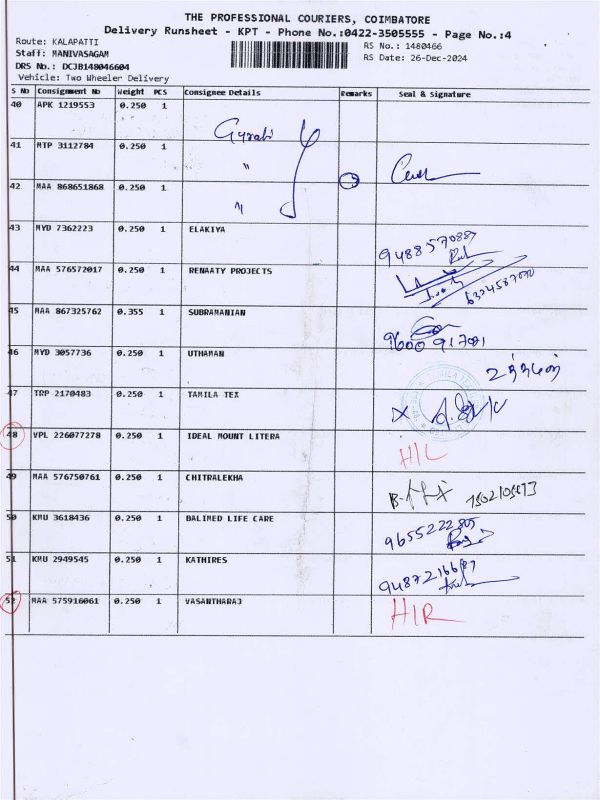 THE PROFESSIONAL COURIERS, COIMBATORE
Delivery Runsheet - KPT - Phone No.:0422-3505555 - Page No.:4
Route: KALAPATTI
RS No.: 1480466
Staff: MANIVASAGAM
RS Date: 26-Dec-2024
DRS No.: DCJB148046604
Vehicle: Two Wheeler Delivery
S No Consignment No Weight PCS Consignee Details Remarks Seal & Signature
40 APK 1219553 0.250 1
41 MTP 3112784 0.250 1 "
42 MAA 868651868 0.250 1 "
43 MYD 7362223 0.250 1 ELAKIYA
44 MAA 576572017 0.250 1 RENAATY PROJECTS
45 MAA 867325762 0.355 1 SUBRAMANIAN
46 MYD 3057736 0.250 1 UTHAMAN
47 TRP 2170483 0.250 1 TAMILA TEX
48 VPL 226077278 0.250 1 IDEAL MOUNT LITERA H/L
49 MAA 576750761 0.250 1 CHITRALEKHA
50 KMU 3618436 0.250 1 BALIMED LIFE CARE
51 KMU 2949545 0.250 1 KATHIRES
52 MAA 575916061 0.250 1 VASANTHARAJ H/R